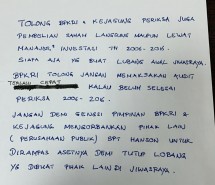 TOLONG BPKRI & KEJAGUNG PERIKSA JUGA
PEMBELIAN SAHAM LANGSUNG MAUPUN LEWAT
MANAJER INVESTASI TH 2006-2016.
SIAPA AJA YG BUAT LUBANG AWAL JIWASRAYA.
BPKRI TOLONG JANGAN MEMAKSAKAN AUDIT
TERLALU CEPAT KALAU BELUM SELESAI
PERIKSA 2006-2016.
JANGAN DEMI GENGSI PIMPINAN BPKRI &
KEJAGUNG MENGORBANKAN PIHAK LAIN
(PERUSAHAAN PUBLIK) SPT HANSON UNTUK
DIRAMPAS ASETNYA DEMI TUTUP LOBANG
YG DIBUAT PIHAK LAIN DI JIWASRAYA.